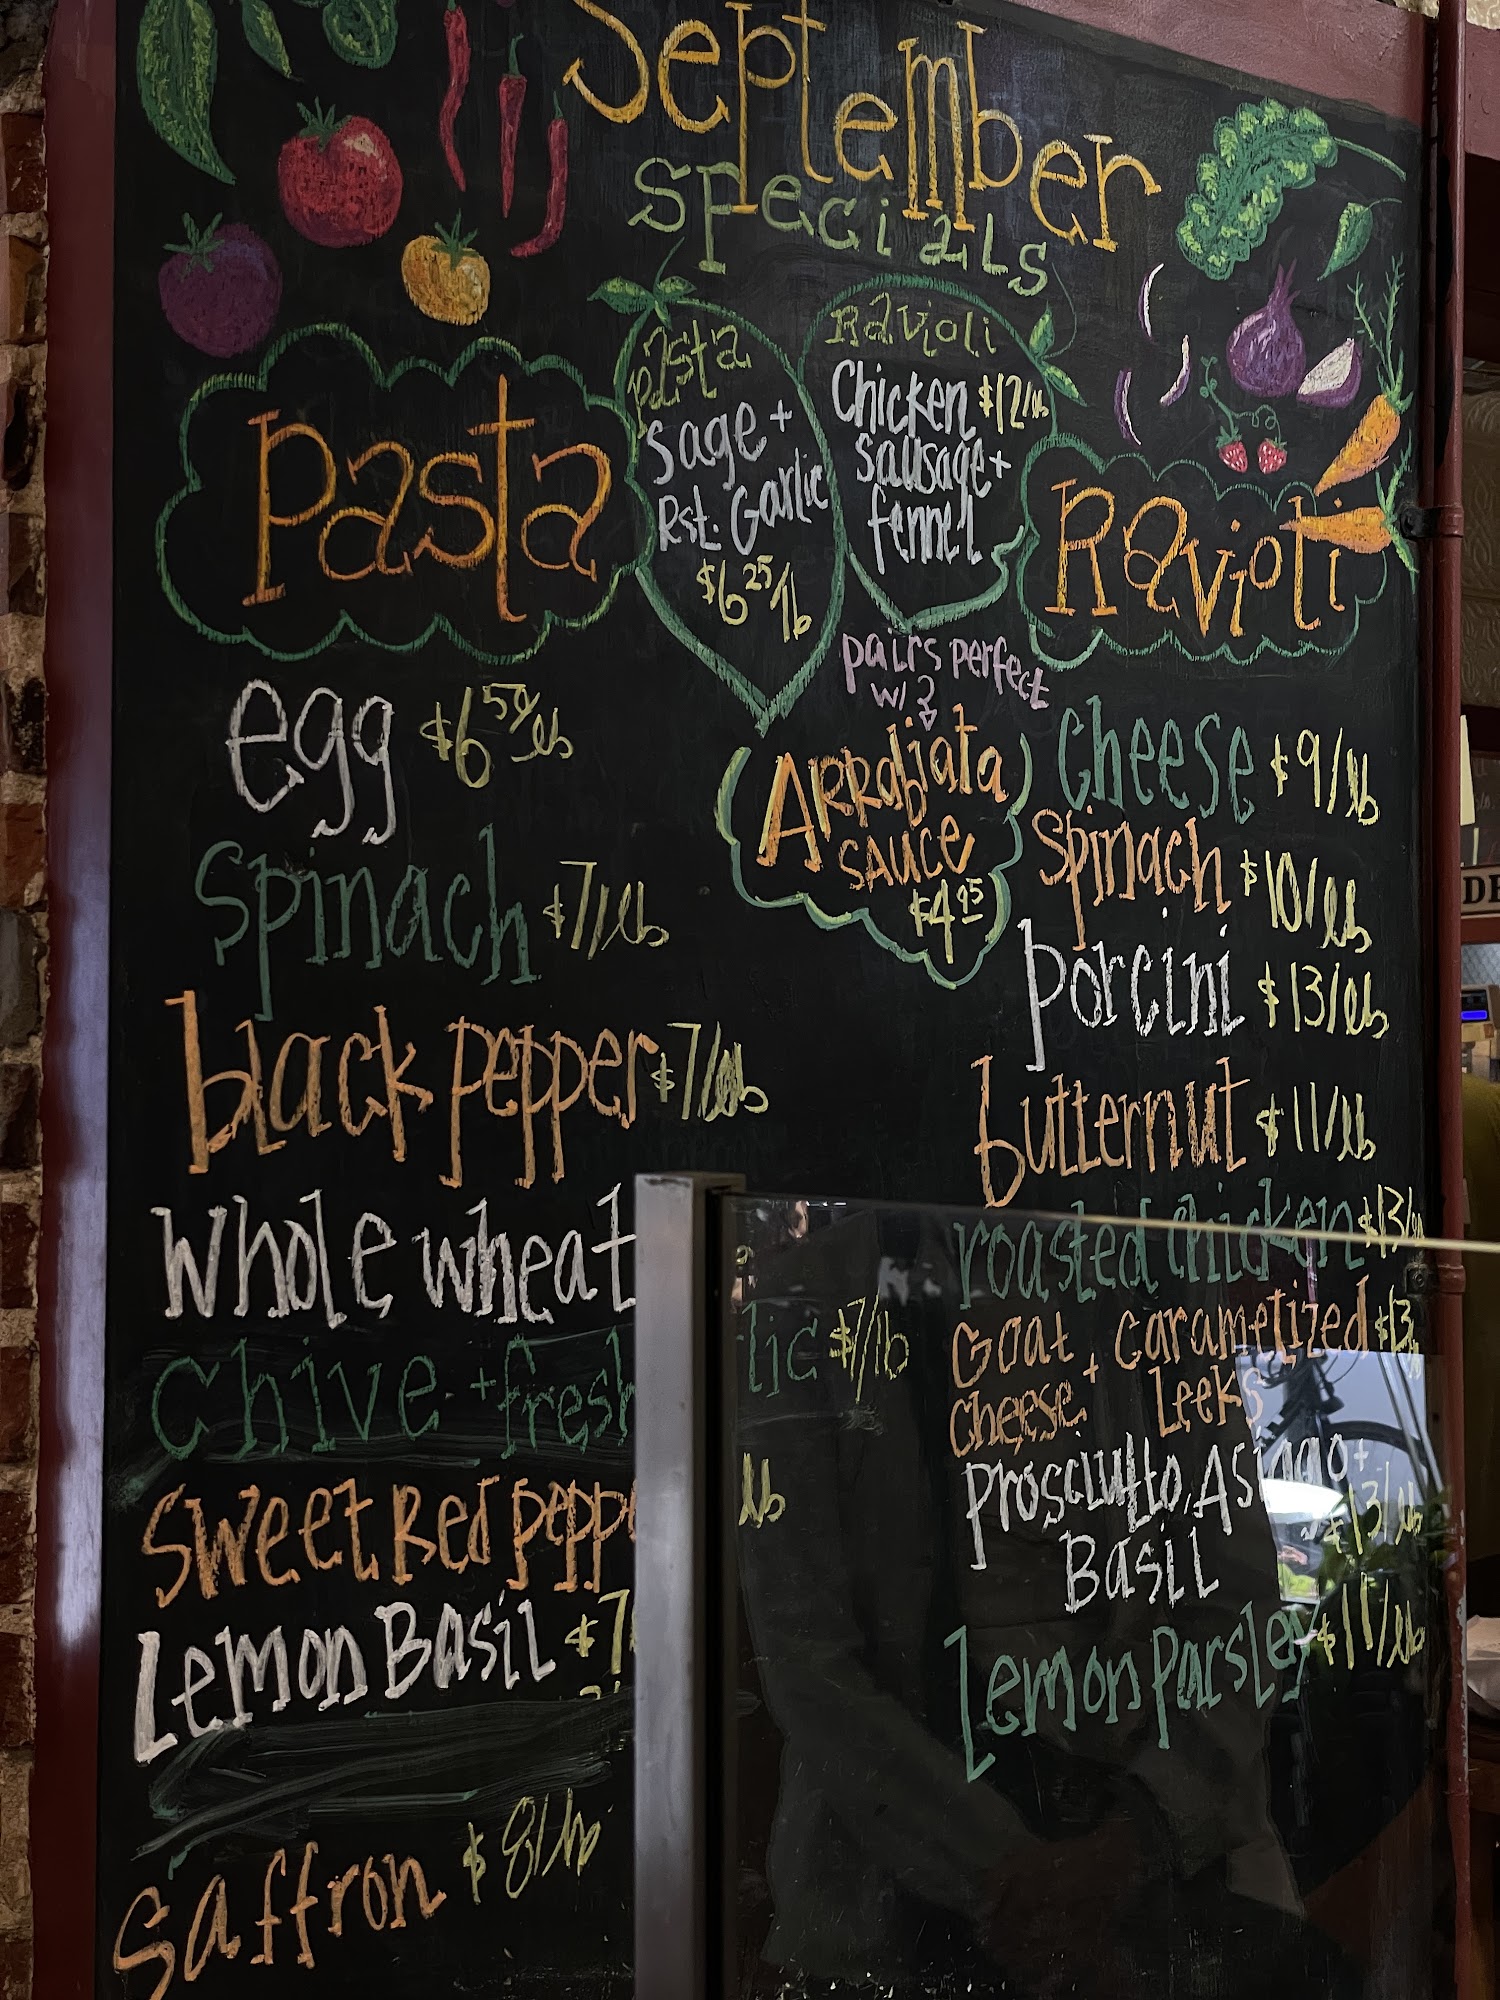 September
Specials
Pasta
Pasta
Sage +
Rst. Garlic
$6 25/lb
Ravioli
Chicken $12/lb
Sausage +
fennel
Ravioli
pairs perfect
w/
Arrabiata
Sauce
$4 95
egg $6 50/lb
Spinach $7/lb
black pepper $7/lb
whole wheat
Chive + fresh
lic $7/lb
Sweet Red Pepp
lb
Lemon Basil $7
Saffron $8/lb
Cheese $9/lb
Spinach $10/lb
porcini $13/lb
butternut $11/lb
roasted chicken $13/lb
Goat + caramelized $13
cheese Leeks
Prosciutto, Asiago +
Basil $13/lb
Lemon Parsley $11/lb
DE